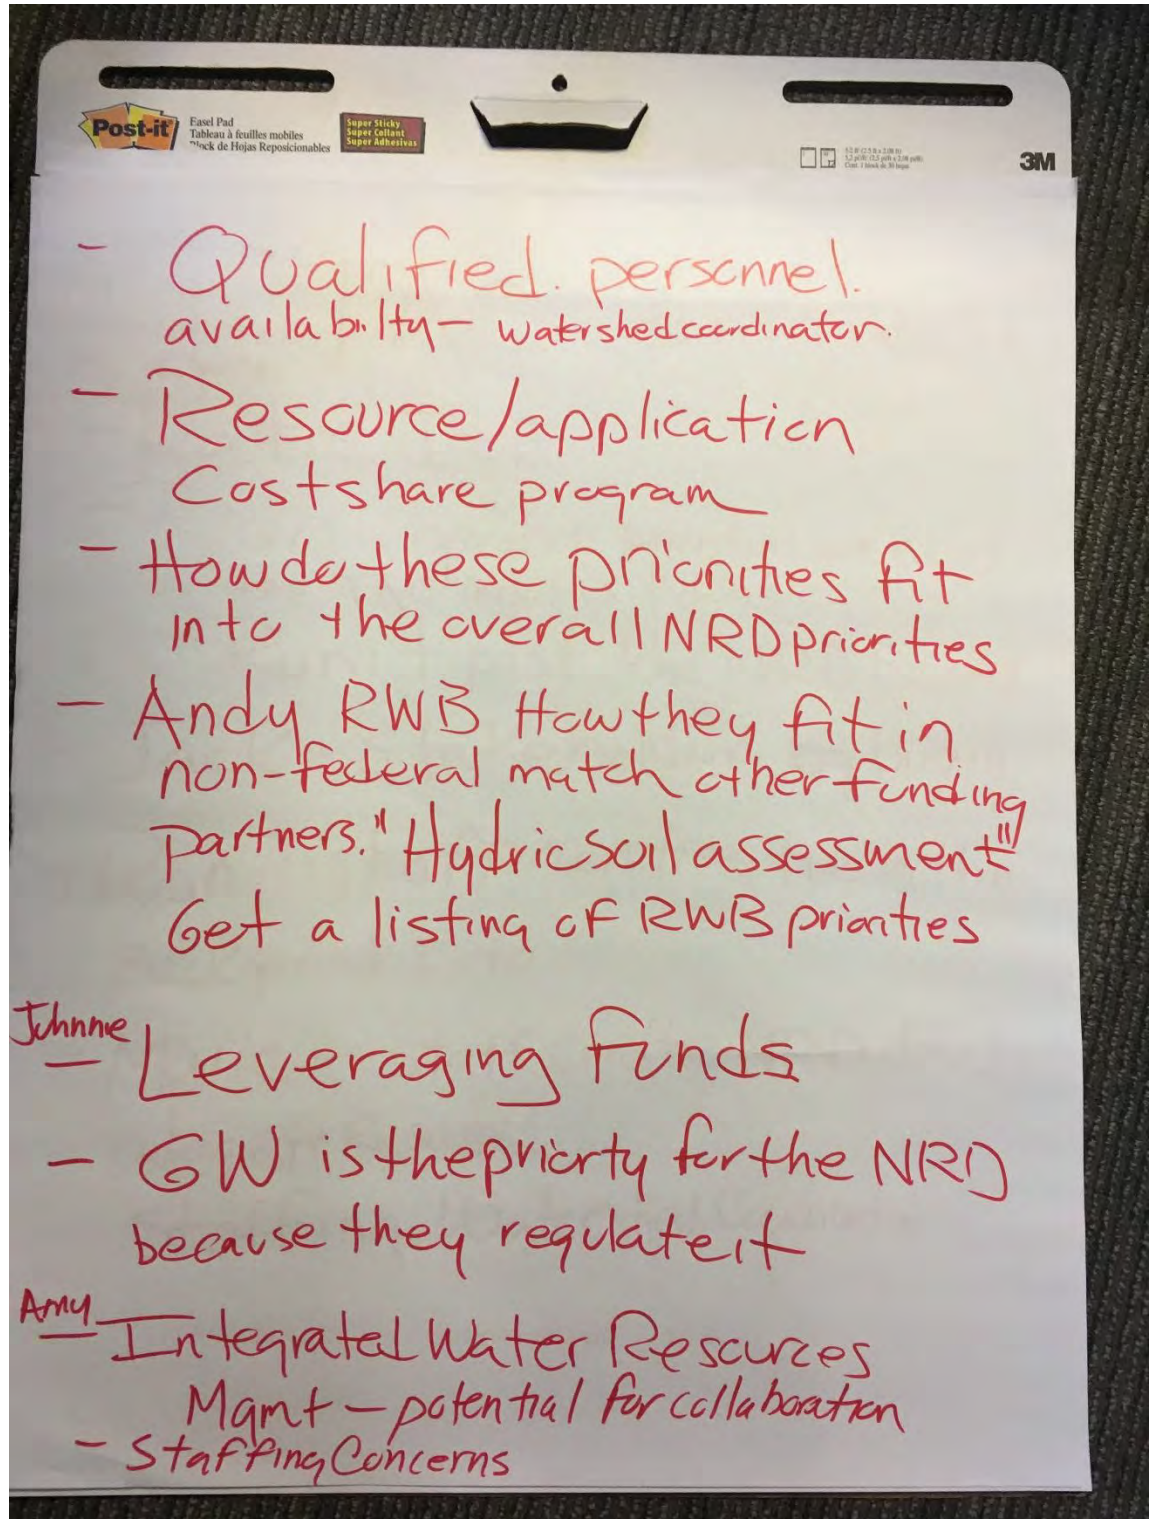 Post-it
Easel Pad
Tableau à feuilles mobiles
Block de Hojas Reposicionables
Super Sticky
Super Collant
Super Adhesivas
3M
- Qualified. personnel.
availability - watershed coordinator.
- Resource/application
Cost share program
- How do these priorities fit
into the overall NRD priorities
- Andy RWB How they fit in
non-federal match other funding
partners. "Hydric soil assessment"
Get a listing of RWB priorities
Johnnie
- Leveraging funds
- GW is the priorty for the NRD
because they regulate it
Amy
- Integrated Water Resources
Mgmt - potential for collaboration
- Staffing Concerns